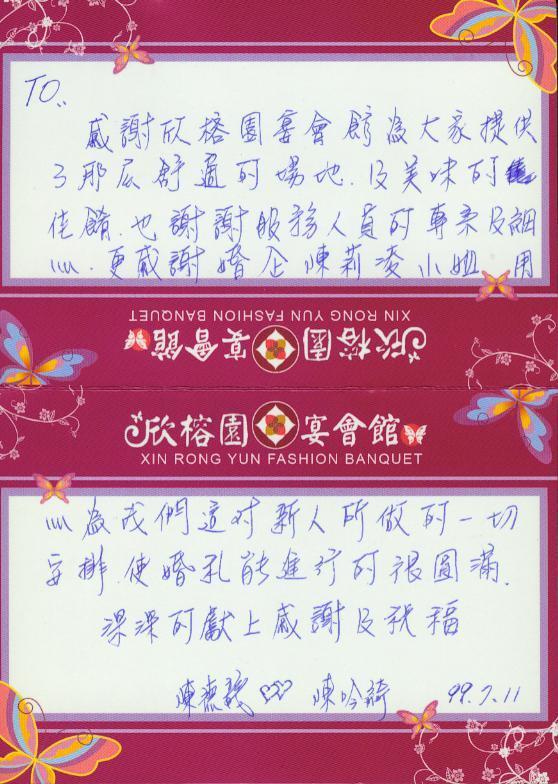 TO..
感謝欣榕園宴會館為大家提供
了那麼舒適的場地.及美味的
佳餚.也謝謝服務人員的專業及細
心.更感謝婚企陳莉淩小姐.用
欣榕園宴會館
XIN RONG YUN FASHION BANQUET
欣榕園宴會館
XIN RONG YUN FASHION BANQUET
心為我們這對新人所做的一切
安排.使婚礼能進行的很圓滿.
深深的獻上感謝及祝福
陳 陳吟綺 99.7.11